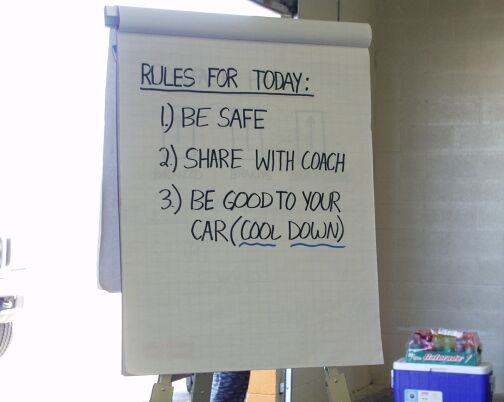 RULES FOR TODAY:
1.) BE SAFE
2.) SHARE WITH COACH
3.) BE GOOD TO YOUR
CAR (COOL DOWN)
Gatorade